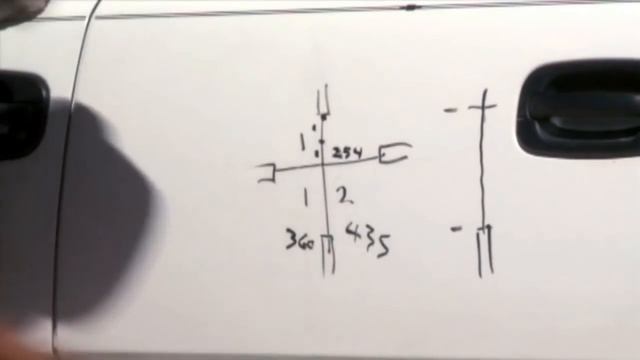 1 254
1 2
360 435